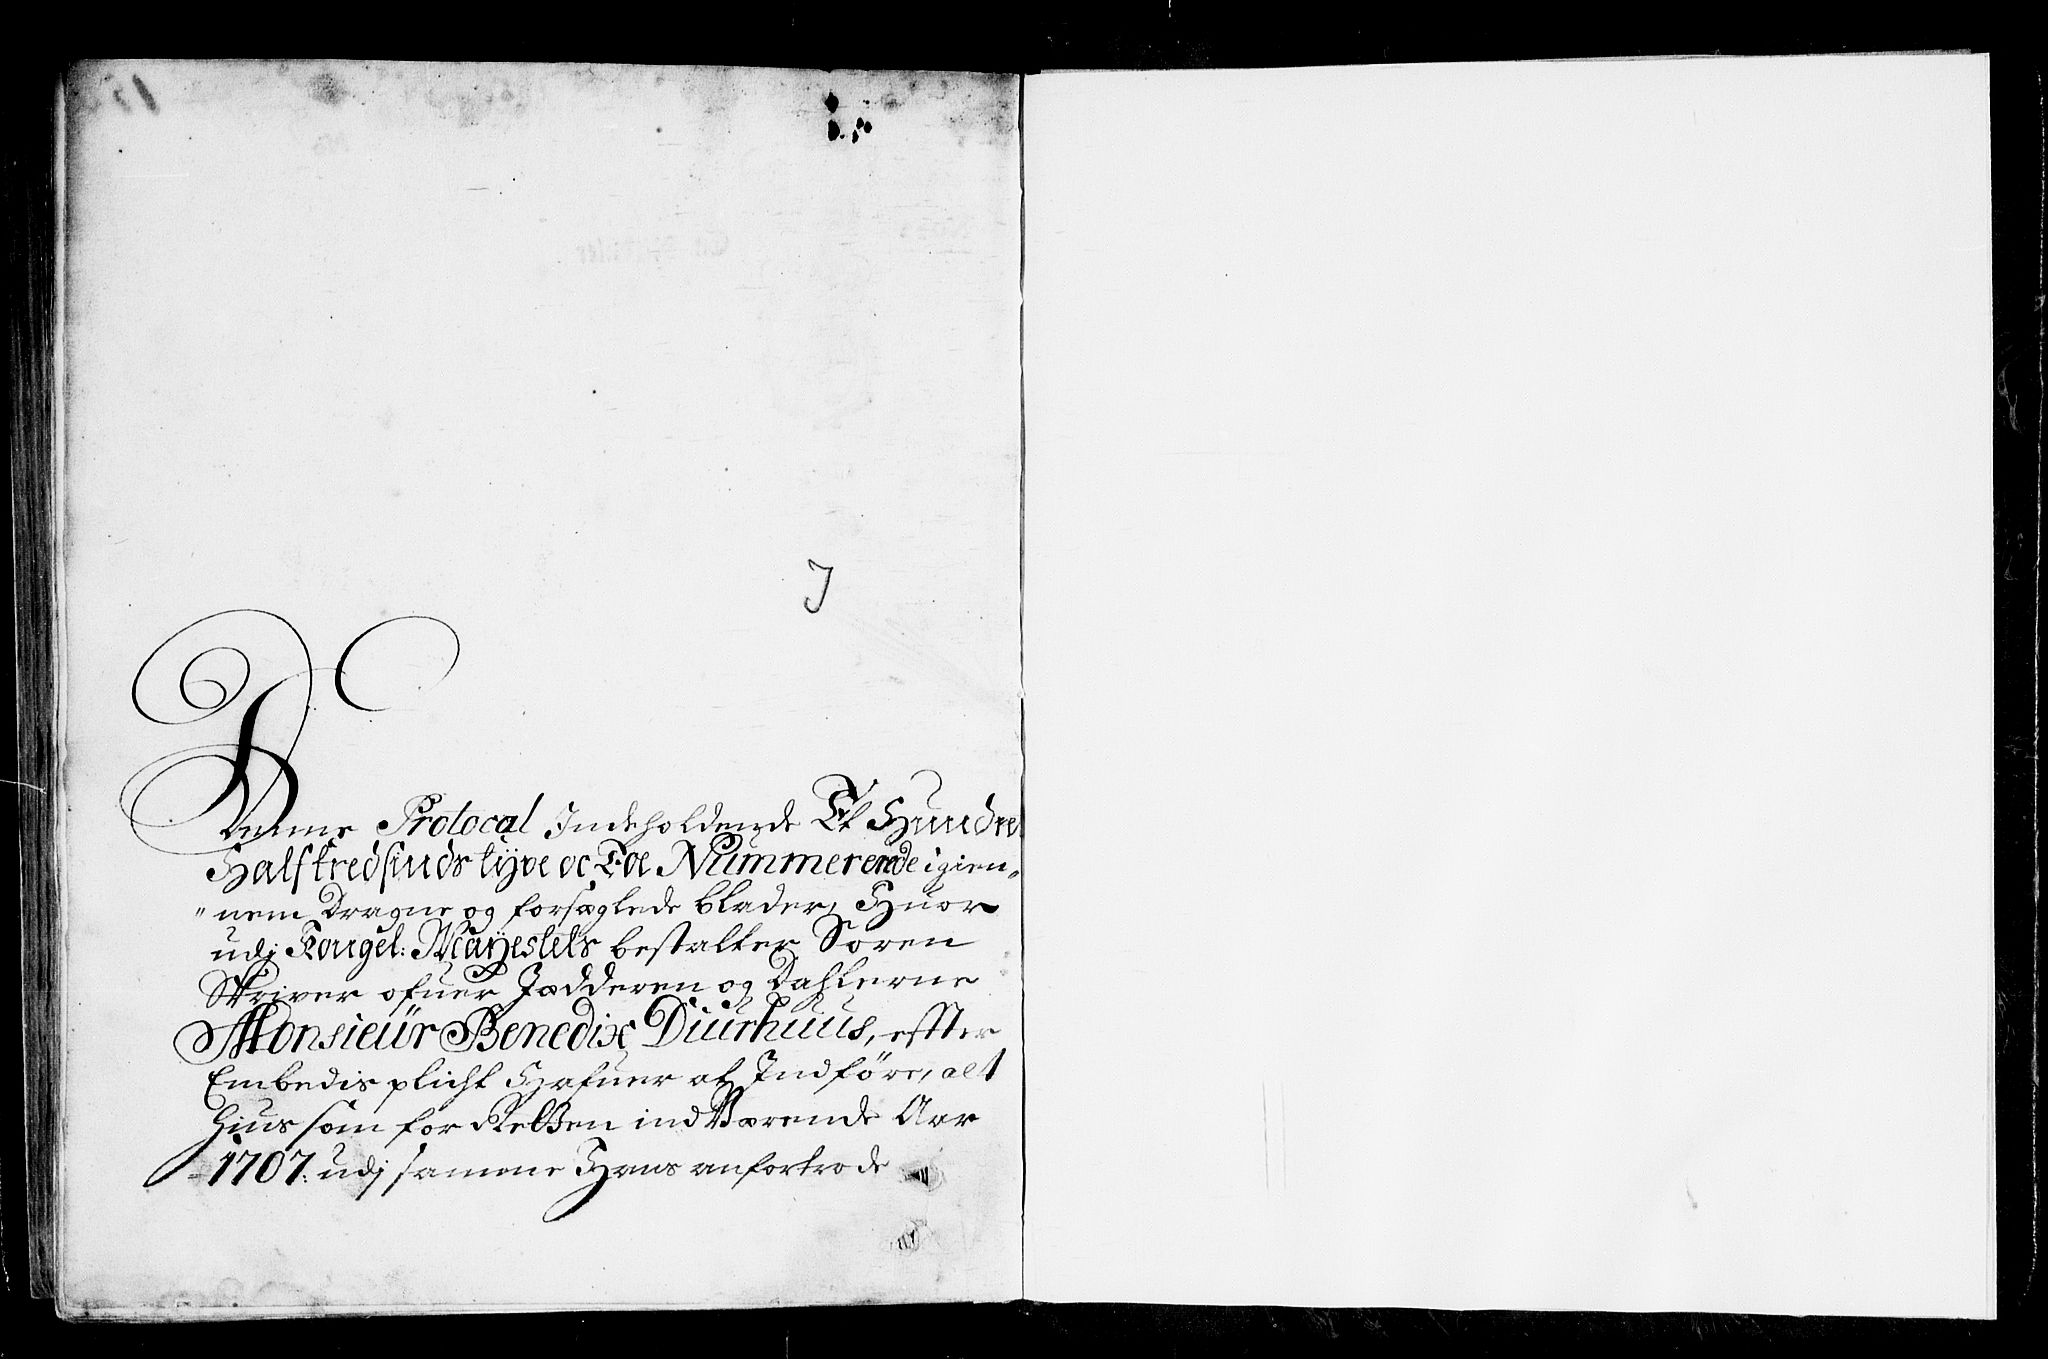 J
Denne Protocol Indeholdende Et Hundred
Halftredsinds tyve oc Toe Nummererede igien„
„nem Dragne og forsæglede blader, Huor
udj Kongel: Mayestets bestalter Soren
Skriver ofuer Jædderen og Dahlerne
Monsieür Benedix Diurhuus, effter
Embedis plicht Hafuer at Indföre, alt
hius som for Retten indVærende Aar
1707. udj samme Hans anfortrode